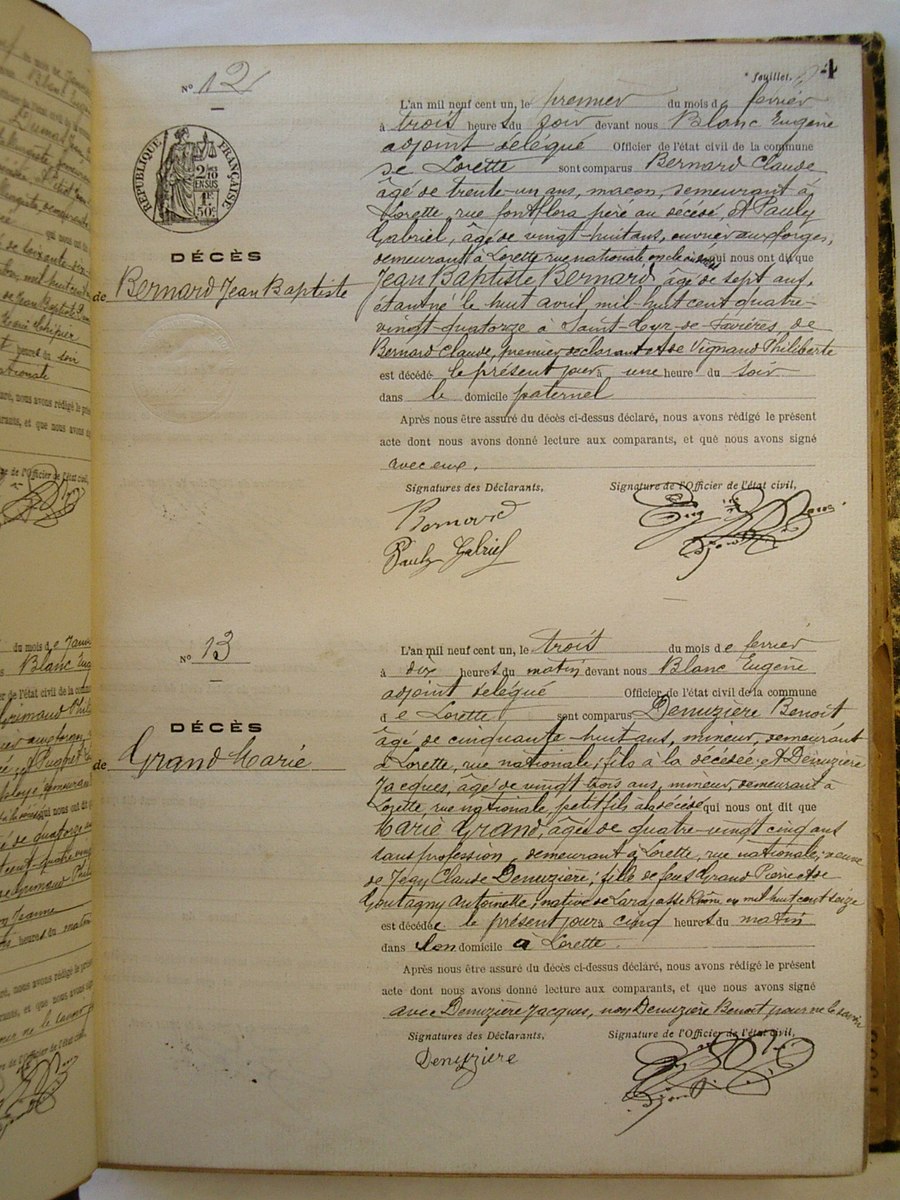 4
* feuillet.
N° 12
RÉPUBLIQUE FRANÇAISE
2/10
EN SUS
1F
50c
DÉCÈS
de Bernard Jean Baptiste
L'an mil neuf cent un, le premier du mois de ferrier
à trois heures du soir devant nous Blanc Eugène
adjoint délégué Officier de l'état civil de la commune
de Lorette sont comparus Bernard Claude
âgé de trente-un ans, maçon, demeurant à
Lorette, rue père au décédé, et Pauly
Gabriel, âgé de vingt-huit ans, ouvrier aux forges,
demeurant à Lorette rue nationale qui nous ont dit que
Jean Baptiste Bernard, âgé de sept ans,
étant né le huit avril mil-huit cent quatre-
vingt-quatorze à Saint-Cyr-de-Favières, de
Bernard Claude, premier declarant et de Vignaud Philiberte
est décédé le présent jour à une heure du soir
dans le domicile paternel
Après nous être assuré du décès ci-dessus déclaré, nous avons rédigé le présent
acte dont nous avons donné lecture aux comparants, et que nous avons signé
avec eux.
Signatures des Déclarants, Signature de l'Officier de l'état civil,
Bernard
Pauly Gabriel
N° 13
DÉCÈS
de Grand Marie
L'an mil neuf cent un, le trois du mois de ferrier
à dix heures du matin devant nous Blanc Eugène
adjoint délégué Officier de l'état civil de la commune
de Lorette sont comparus Denuzière Benoit
âgé de cinquante-huit ans, mineur, demeurant
à Lorette, rue nationale, fils à la décédée, et Denuzière
Jacques, âgé de vingt trois ans, mineur, demeurant à
Lorette, rue nationale, petit fils à la décédée qui nous ont dit que
Marie Grand, âgée de quatre-vingt cinq ans
sans profession, demeurant à Lorette, rue nationale, veuve
de Jean Claude Denuzière; fille de feus Grand Pierre et de
Goutagny Antoinette, native de Larajasse Rhône en mil huit cent seize
est décédée le présent jour à cinq heures du matin
dans son domicile à Lorette.
Après nous être assuré du décès ci-dessus déclaré, nous avons rédigé le présent
acte dont nous avons donné lecture aux comparants, et que nous avons signé
avec Denuzière Jacques, non Denuzière Benoit pour ne le savoir
Signatures des Déclarants, Signature de l'Officier de l'état civil,
Denuziere